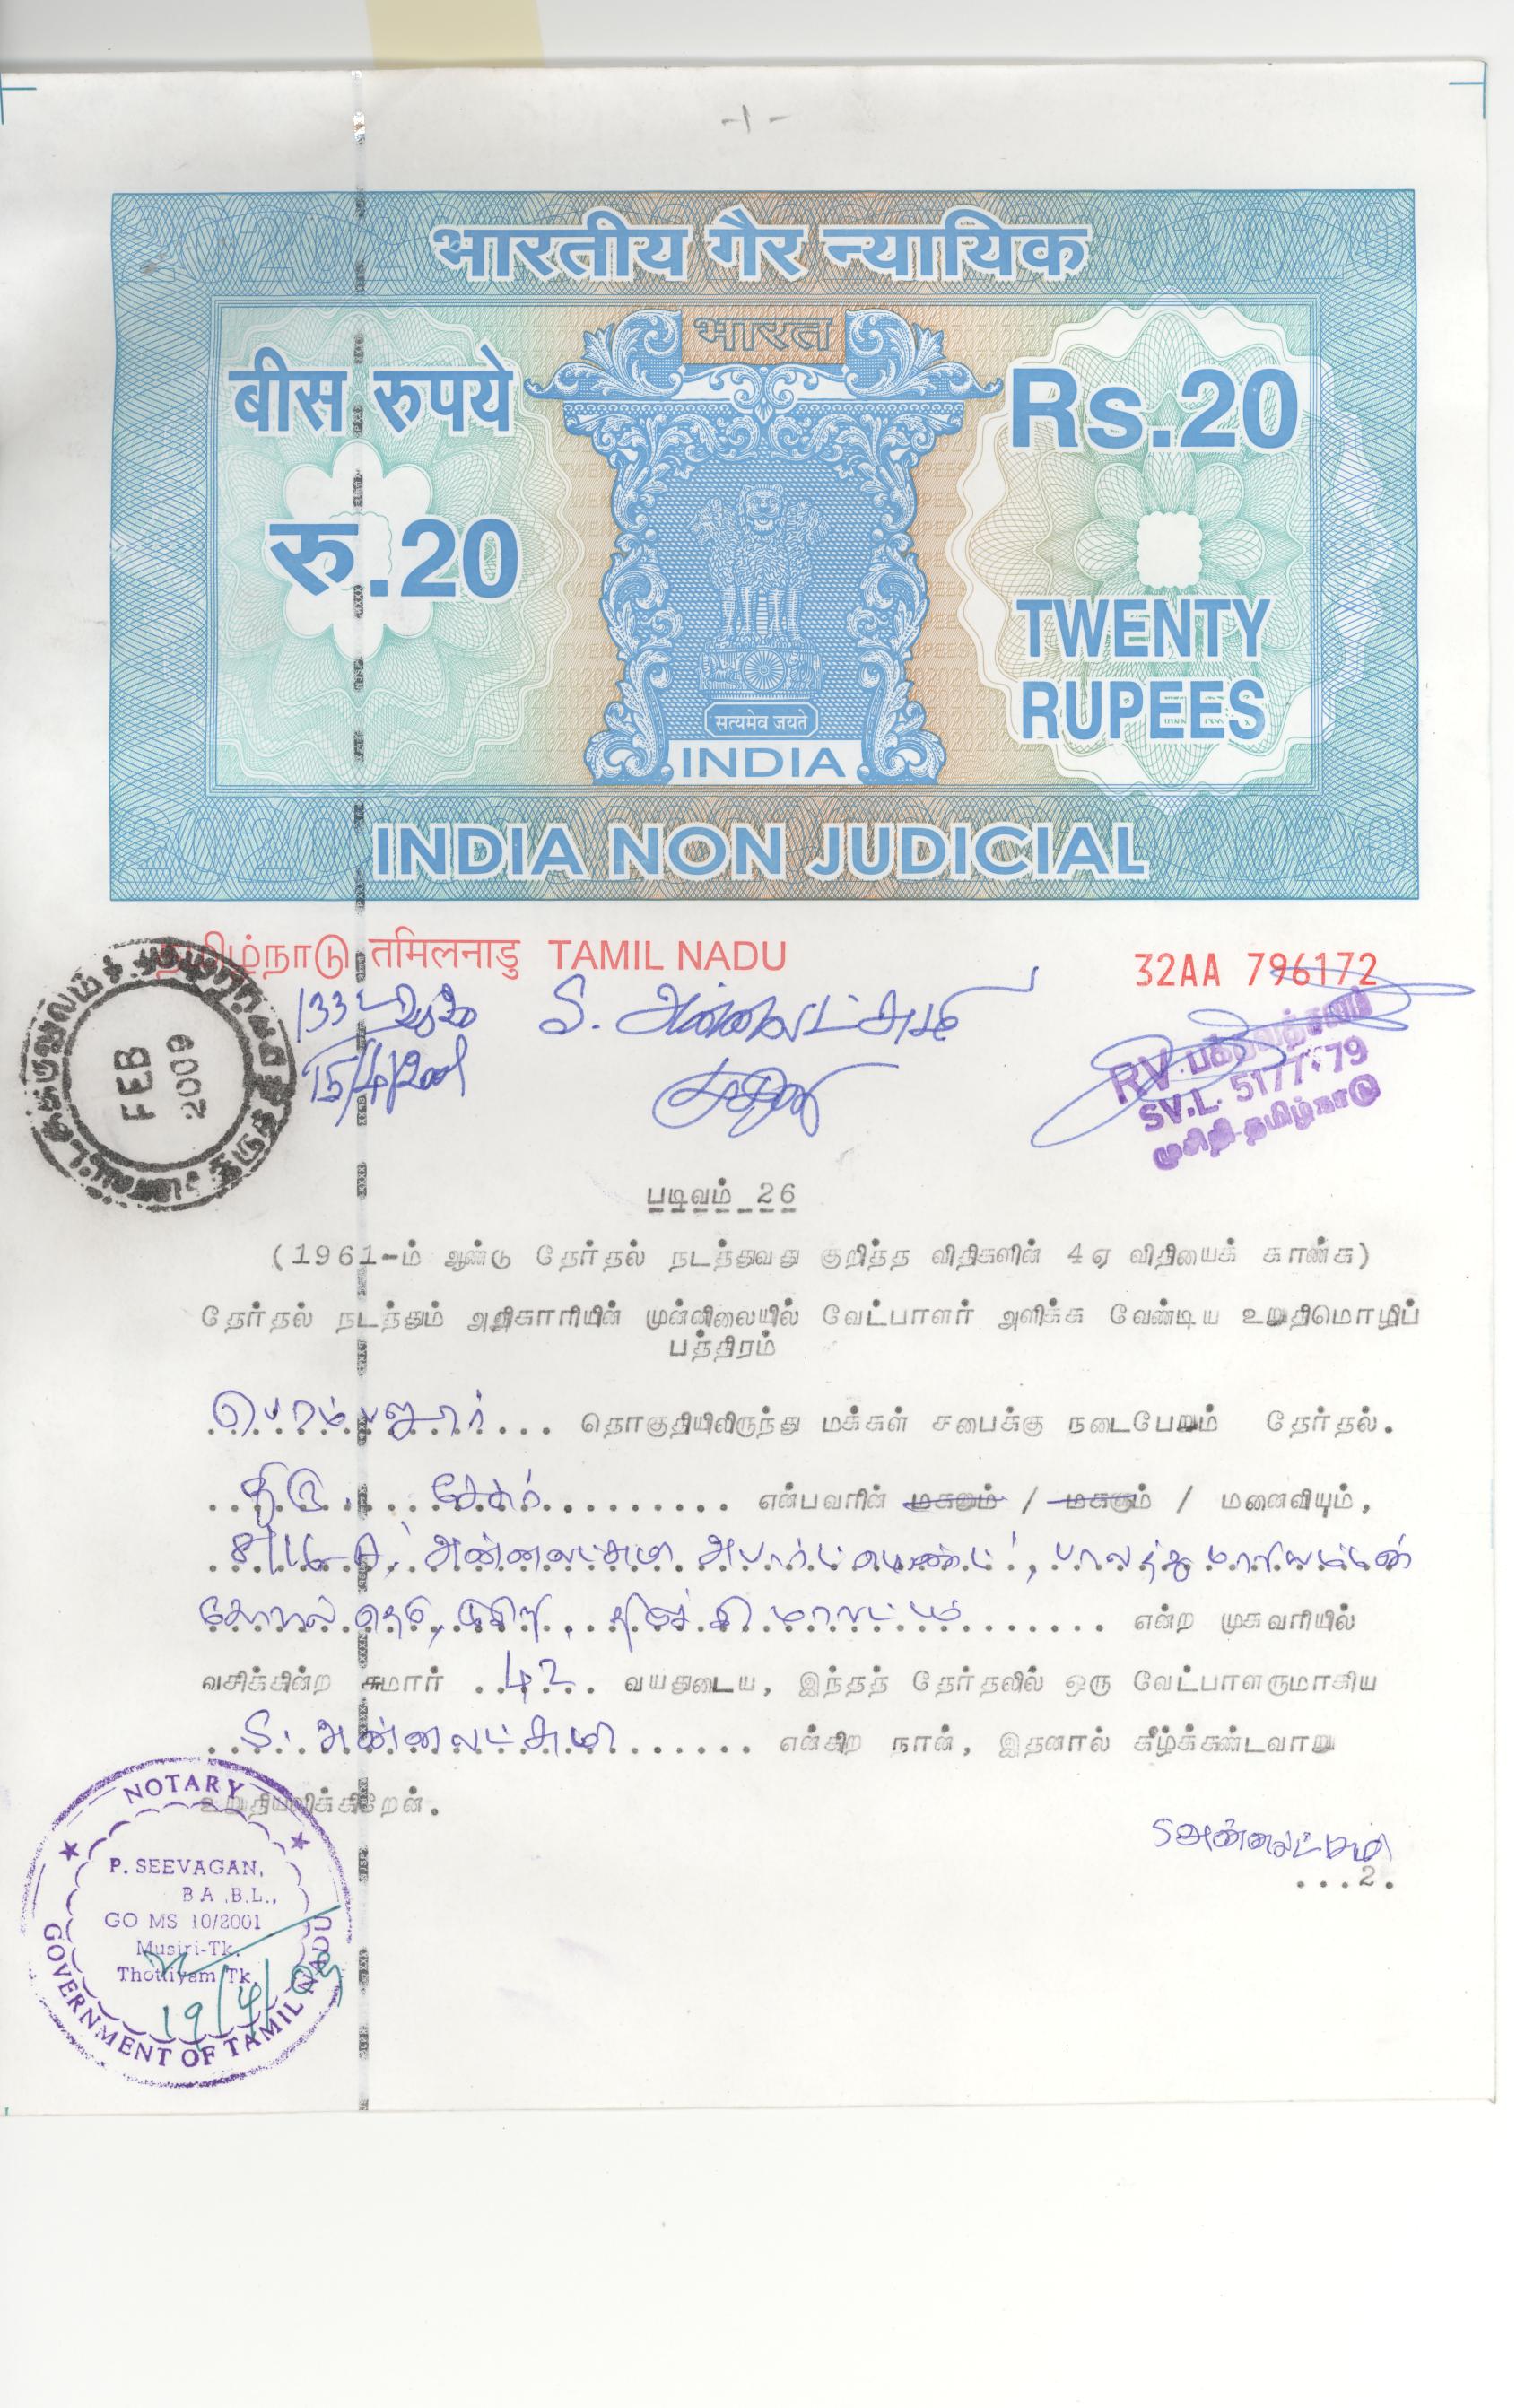 -1-
भारतीय गैर न्यायिक
भारत
बीस रुपये
Rs.20
रु.20
TWENTY
RUPEES
सत्यमेव जयते
INDIA
INDIA NON JUDICIAL
தமிழ்நாடு तमिलनाडु TAMIL NADU
32AA 796172
S. அன்னலட்சுமி
15/4/2009
FEB
2009
RV.
SV.L. 5177.79
முசிறி-தமிழ்நாடு
படிவம் 26
(1961-ம் ஆண்டு தேர்தல் நடத்துவது குறித்த விதிகளின் 4ஏ விதியைக் காண்க)
தேர்தல் நடத்தும் அதிகாரியின் முன்னிலையில் வேட்பாளர் அளிக்க வேண்டிய உறுதிமொழிப்
பத்திரம்
பெரம்பலூர்... தொகுதியிலிருந்து மக்கள் சபைக்கு நடைபேறும் தேர்தல்.
..திரு.... சேகர்......... என்பவரின் மகனும் / மகளும் / மனைவியும்,
8/16-A, அன்னலட்சுமி அபார்ட்மெண்ட்,
கோவில் தெரு, முசிறி, திருச்சி மாவட்டம்....... என்ற முகவரியில்
வசிக்கின்ற சுமார் ..42.. வயதுடைய, இந்தத் தேர்தலில் ஒரு வேட்பாளருமாகிய
..S. அன்னலட்சுமி....... என்கிற நான், இதனால் கீழ்க்கண்டவாறு
உறுதியளிக்கிறேன்.
S அன்னலட்சுமி
...2.
NOTARY
P. SEEVAGAN,
B A .B.L.,
GO MS 10/2001
Musiri-Tk.
Thottiyam Tk.
19/4/09
GOVERNMENT OF TAMIL NADU